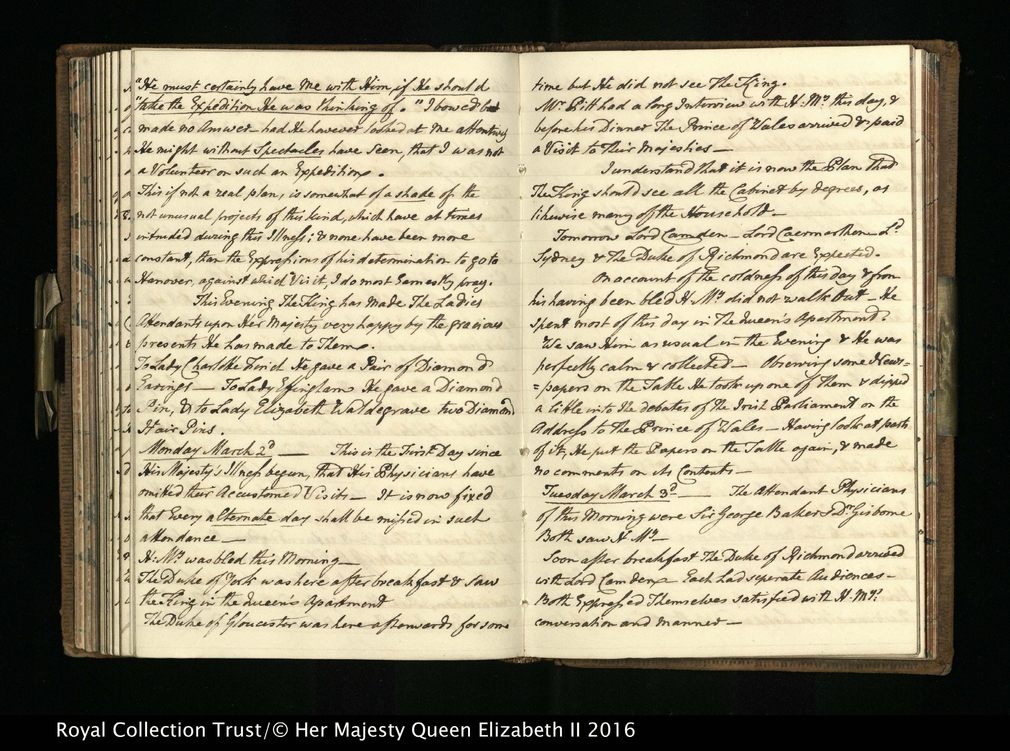 "He must certainly have Me with Him, if He should
"take the Expedition He was thinking of." I bowed but
made no Answer – had He however looked at me attentively
He might without Spectacles have seen, that I was not
a Volunteer on such an Expedition.
This if not a real plan, is somewhat of a shade of the
not unusual projects of this kind, which have at times
intruded during this Illness; & none have been more
constant, than the Expressions of his determination to go to
Hanover, against which Visit, I do most Earnestly pray.
This Evening The King has made The Ladies
Attendants upon Her Majesty very happy by the gracious
presents He has made to Them.
To Lady Charlotte Finch He gave a Pair of Diamond
Earings — To Lady Effingham He gave a Diamond
Pin, & to Lady Elizabeth Waldegrave two Diamond
Hair Pins.
Monday March 2d — This is the First Day since
His Majesty's Illness begun, that His Physicians have
omitted their Accustomed Visits — It is now fixed
that Every alternate day shall be missed in such
attendance —
H: My was bled this Morning —
The Duke of York was here after breakfast & saw
the King in the Queen's Apartment
The Duke of Gloucester was here afterwards for some
time but He did not see The King.
Mr Pitt had a long Interview with H: My this day, &
before his Dinner The Prince of Wales arrived & paid
a Visit to Their Majesties —
I understand that it is now the Plan that
The King should see all the Cabinet by degrees, as
likewise many of the Household —
Tomorrow Lord Camden — Lord Caermarthen — Ld
Sydney & The Duke of Richmond are Expected.
On account of the coldness of this day & from
his having been bled H: My did not walk Out — He
spent most of this day in The Queen's Apartment.
We saw Him as usual in the Evening & He was
perfectly calm & collected — Observing some News-
=papers on the Table He took up one of them & dipped
a little into the debates of the Irish Parliament on the
Address to The Prince of Wales — Having look'd at parts
of it, He put the Papers on the Table again, & made
no comments on its Contents —
Tuesday March 3d — The Attendant Physicians
of this Morning were Sir George Baker & Dr Gisborne
Both saw H: My —
Soon after breakfast The Duke of Richmond arrived
with Lord Camden — Each had seperate Audiences —
Both Expressed Themselves satisfied with H: My's
conversation and manner —
Royal Collection Trust/© Her Majesty Queen Elizabeth II 2016